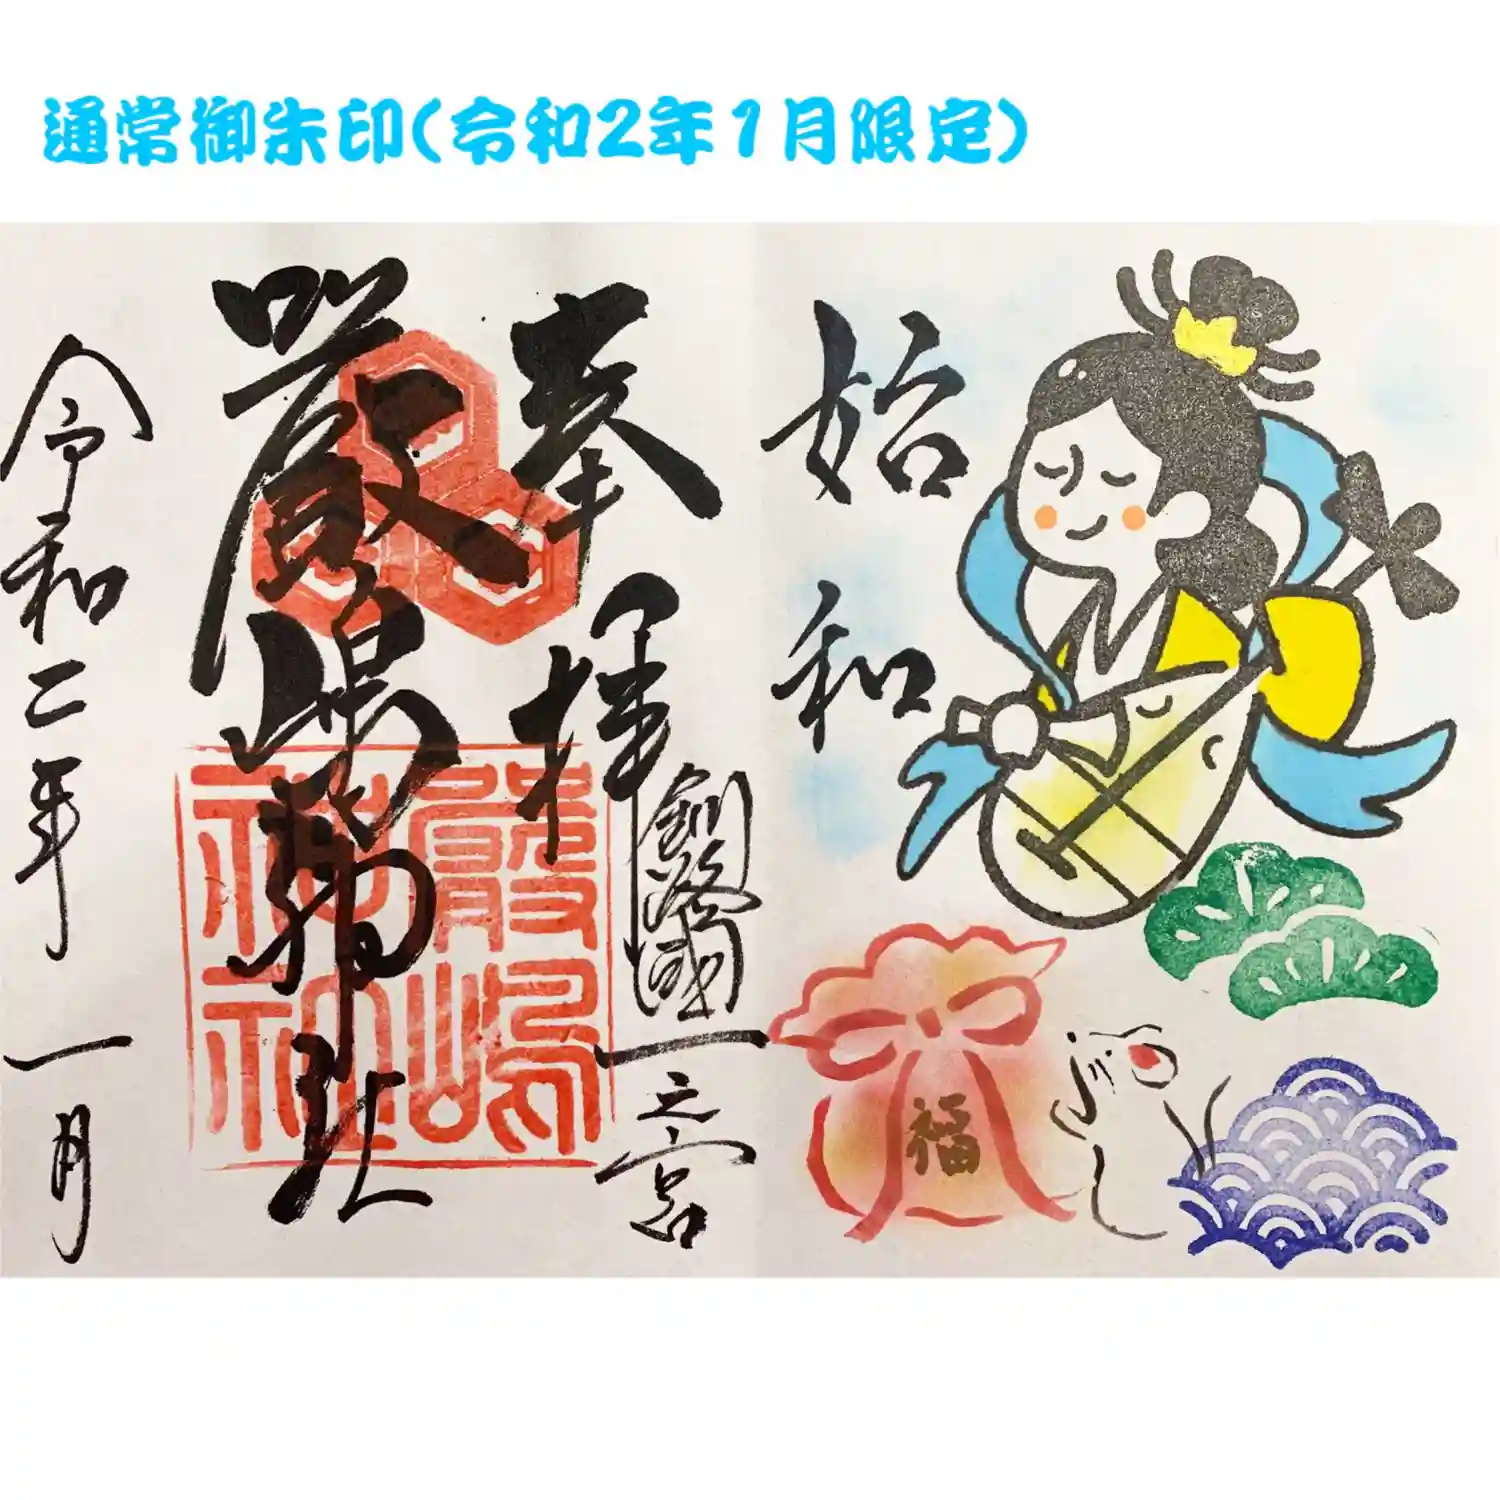 通常御朱印(令和2年1月限定)
始和
奉拝
釧路國一之宮
厳嶋神社
嚴嶋神社
令和二年一月
福